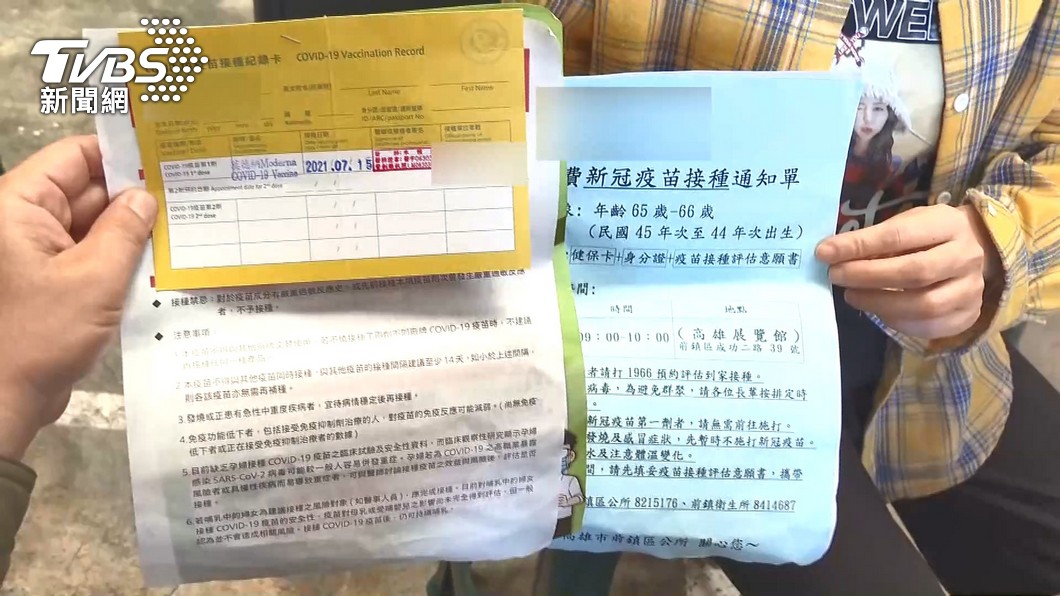 TVBS
新聞網
苗接種紀錄卡 COVID-19 Vaccination Record
Last Name
First Name
COVID-19疫苗第1劑
COVID-19 1st dose
Moderna
COVID-19 Vaccine
2021.07.15
第2劑預約日期 Appointment date for 2nd dose
COVID-19疫苗第2劑
COVID-19 2nd dose
◆ 接種禁忌：對於疫苗成分有嚴重過敏反應史，或先前接種本項疫苗劑次曾發生嚴重過敏反應
者，不予接種。
◆ 注意事項：
2.本疫苗不得與其他疫苗同時接種，與其他疫苗的接種間隔建議至少 14天。如小於上述間隔，
則各該疫苗亦無需再補種。
3.發燒或正患有急性中重度疾病者，宜待病情穩定後再接種。
4.免疫功能低下者，包括接受免疫抑制劑治療的人，對疫苗的免疫反應可能減弱。(尚無免疫
低下者或正在接受免疫抑制治療者的數據)
5.目前缺乏孕婦接種 COVID-19 疫苗之臨床試驗及安全性資料，而臨床觀察性研究顯示孕婦
感染 SARS-CoV-2 病毒可能較一般人容易併發重症。孕婦若為 COVID-19 之高職業暴露
風險者或具慢性疾病而易導致重症者，可與醫師討論接種疫苗之效益與風險後，評估是否
接種。
6.若哺乳中的婦女為建議接種之風險對象(如醫事人員)，應完成接種。目前對哺乳中的婦女
接種 COVID-19 疫苗的安全性、疫苗對母乳或受哺嬰兒之影響尚未完全得到評估，但一般
認為並不會造成相關風險。接種 COVID-19 疫苗後，仍可持續哺乳。
費新冠疫苗接種通知單
年齡 65 歲-66 歲
(民國 45 年次至 44 年次出生)
健保卡+身分證+疫苗接種評估意願書
間：
時間 地點
09：00-10：00 (高雄展覽館)
前鎮區成功二路 39 號
者請打 1966 預約評估到家接種。
病毒，為避免群聚，請各位長輩按排定時
。
新冠疫苗第一劑者，請無需前往施打。
發燒及感冒症狀，先暫時不施打新冠疫苗。
水及注意體溫變化。
間，請先填妥疫苗接種評估意願書，攜帶
鎮區公所 8215176、前鎮衛生所 8414687
高雄市前鎮區公所 關心您～